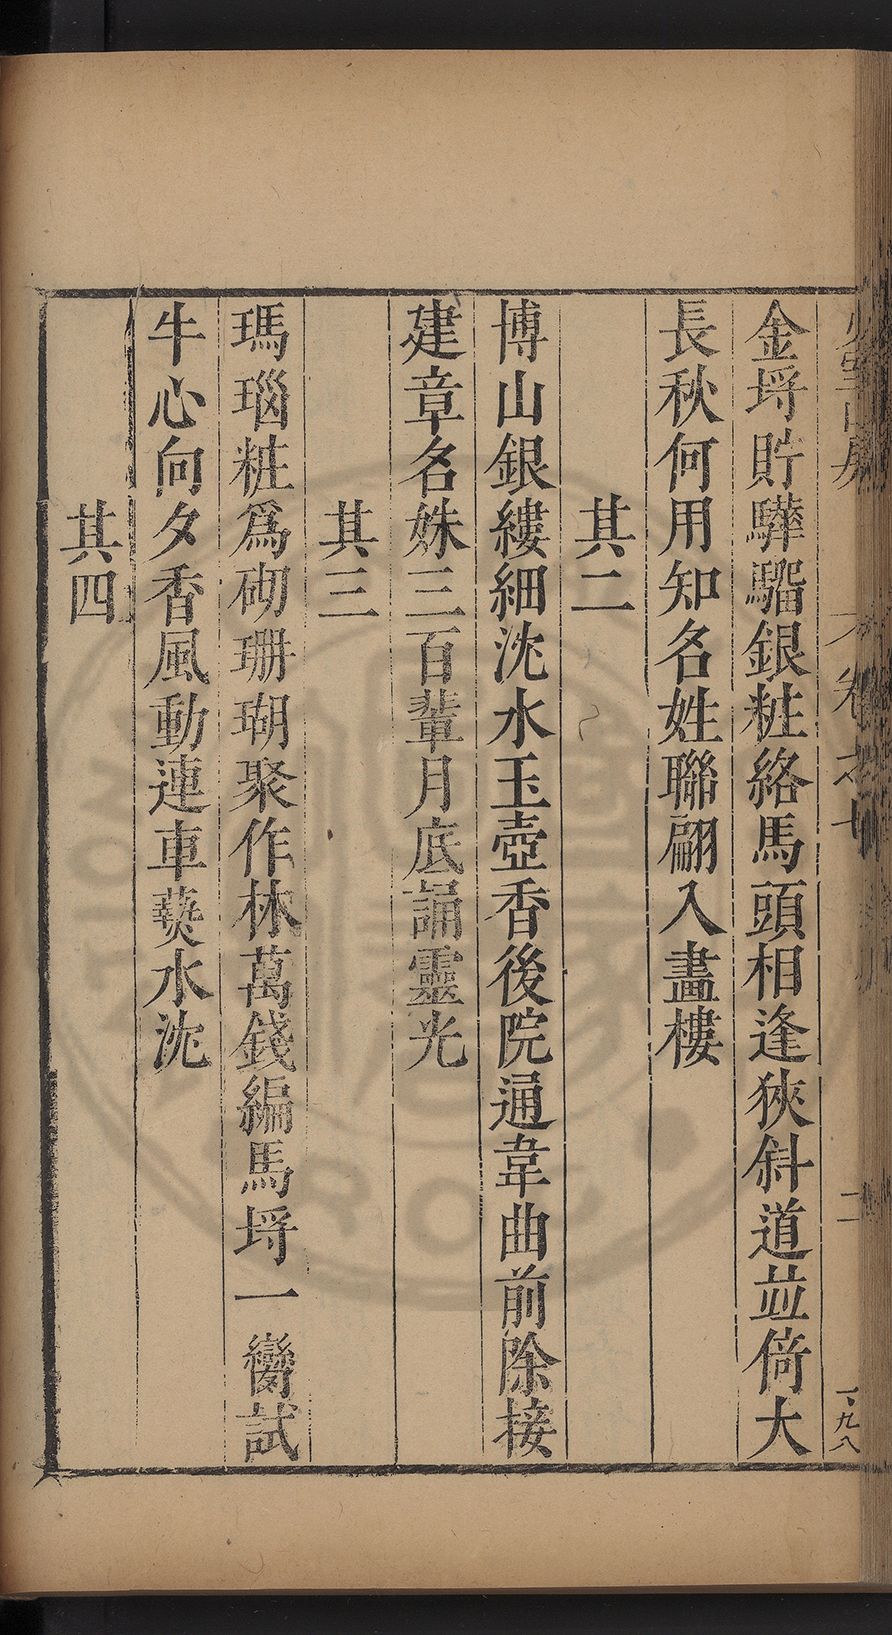 少室山房　卷之七　二
金埒貯驊騮銀粧絡馬頭相逢狹斜道並倚大
長秋何用知名姓聯翩入畫樓
其二
博山銀縷細沈水玉壺香後院通韋曲前除接
建章名姝三百輩月底誦靈光
其三
瑪瑙粧爲砌珊瑚聚作林萬錢編馬埒一臠試
牛心向夕香風動連車爇水沈
其四